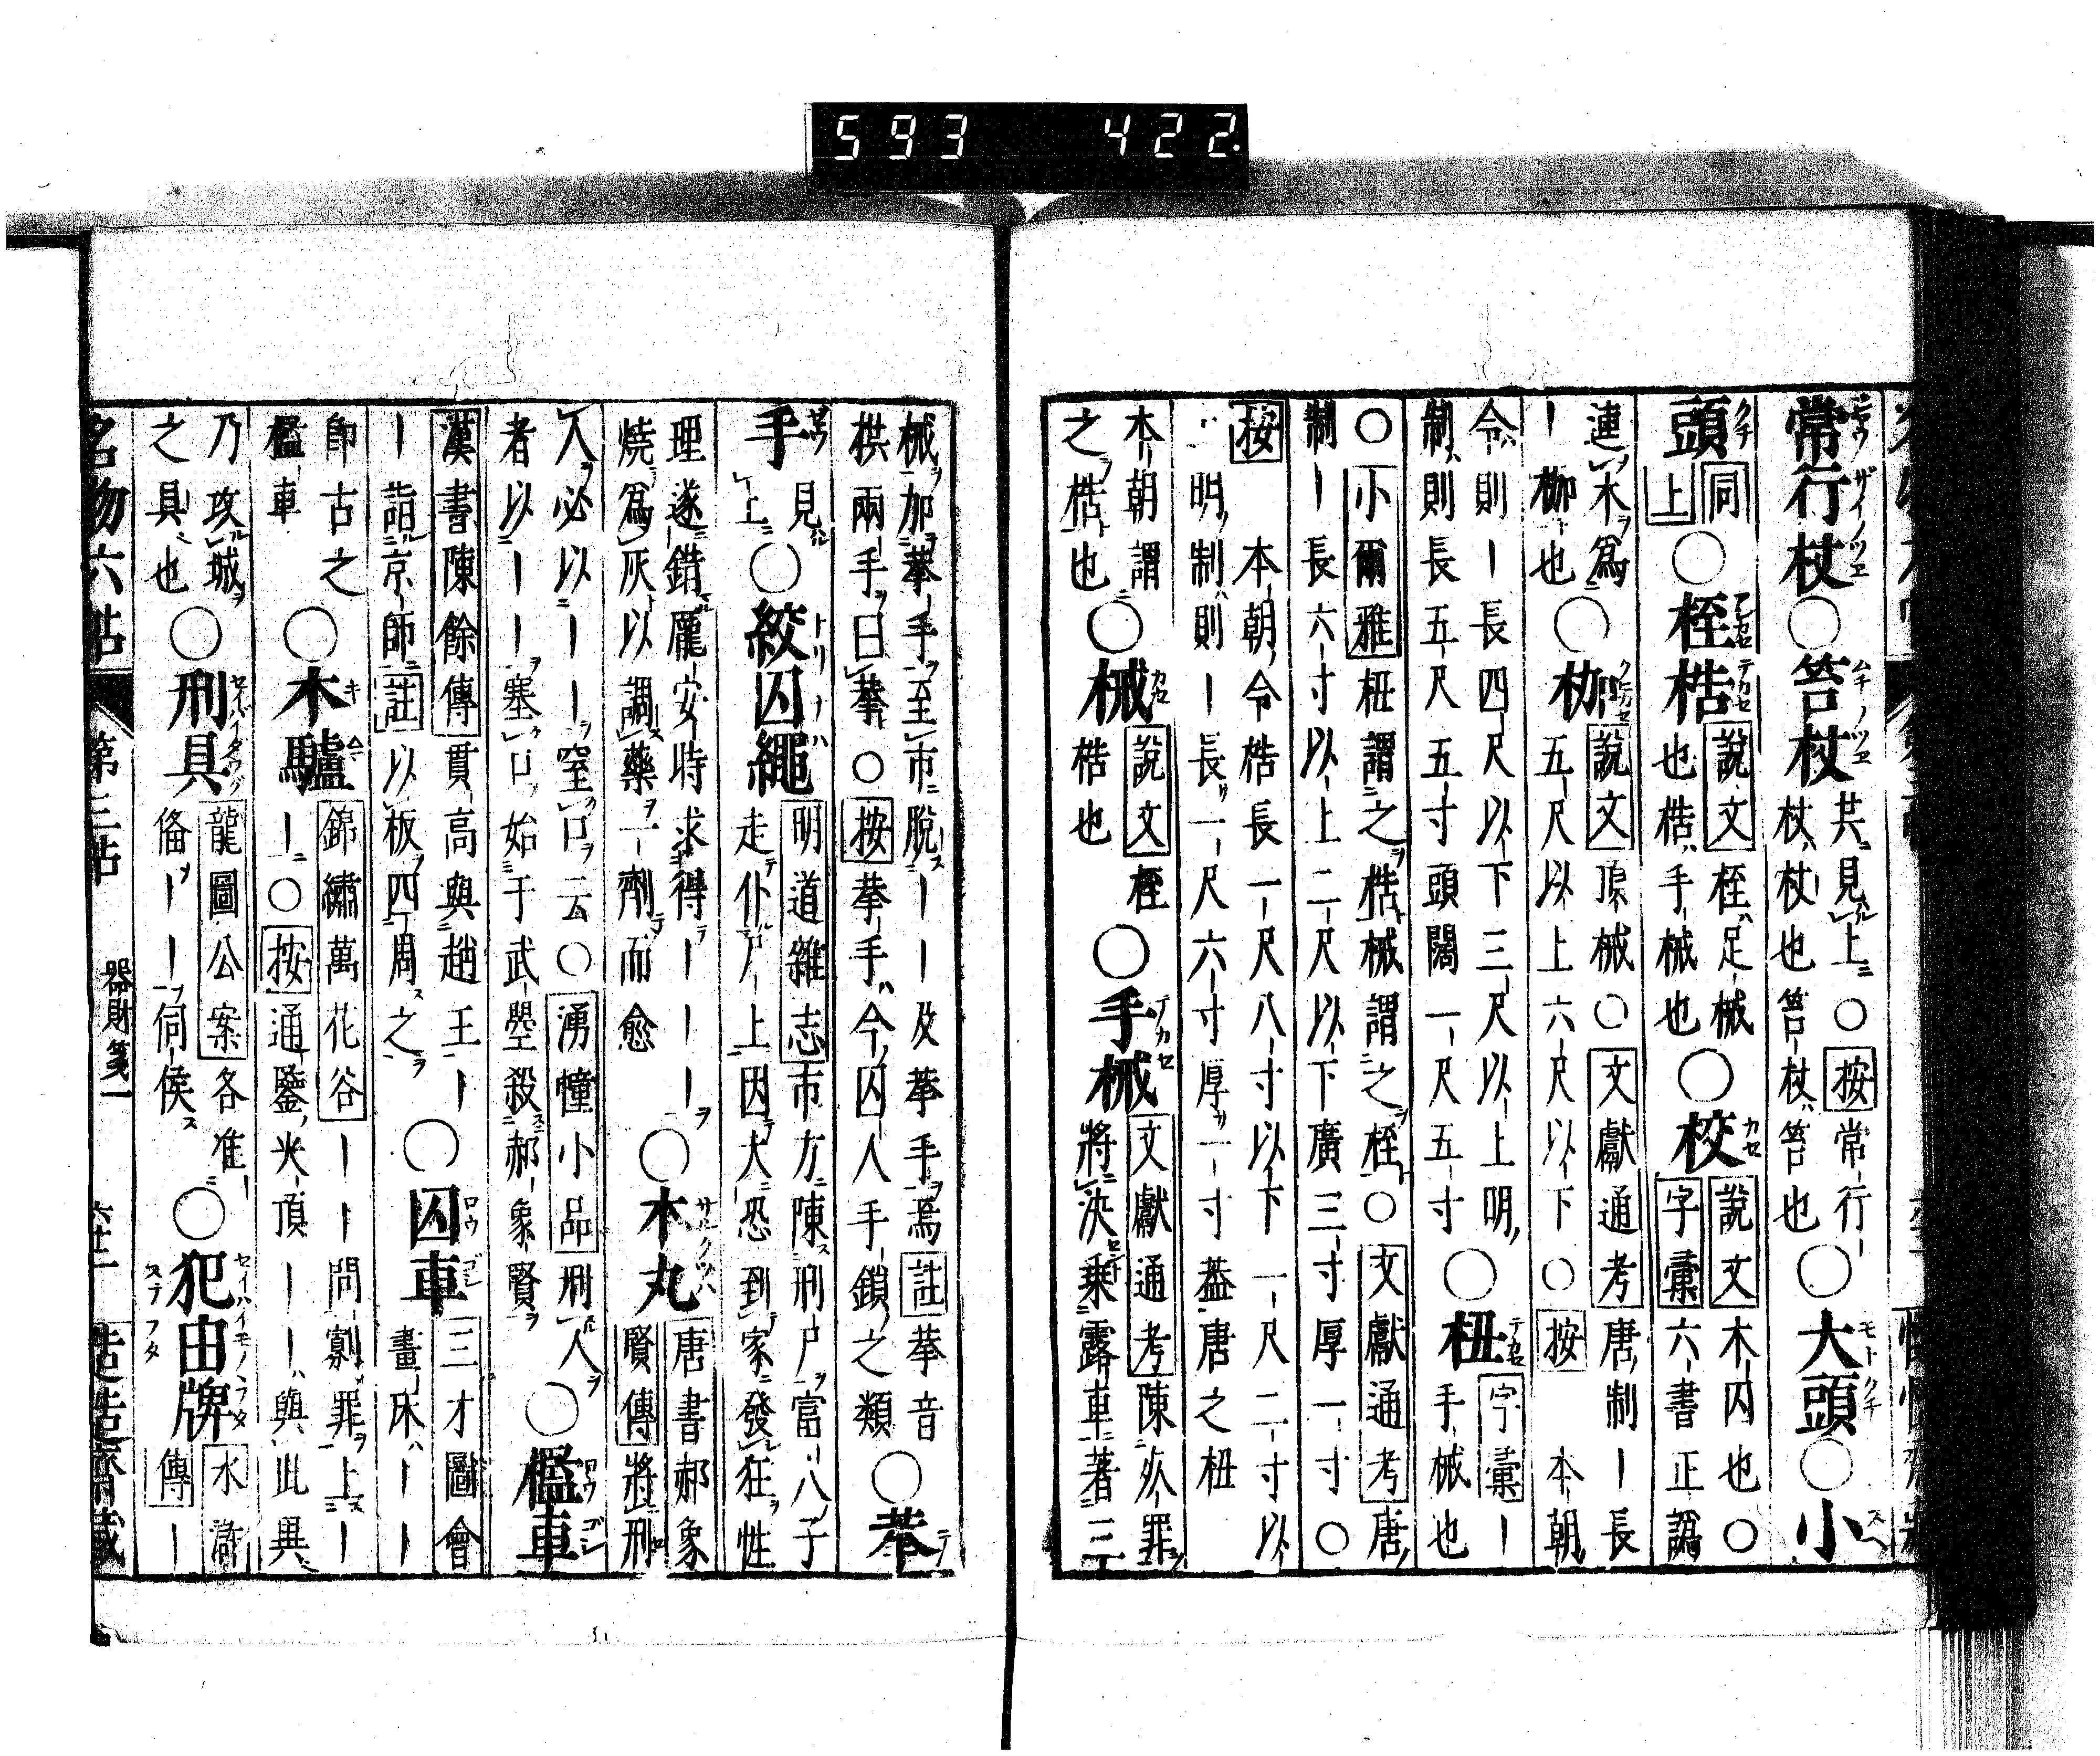 593 422.
常行杖○笞杖 共見上○按常行
杖杖也笞杖笞也○大頭○小
頭 同上○桎梏 說文桎足械
也梏手械也○校 說文木囚也○
字彙六書正譌
連木爲
｜枷也○枷 說文項械○文獻通考唐制｜長
五尺以上六尺以下○按本朝
令則｜長四尺以下三尺以上明
制則長五尺五寸頭闊一尺五寸○杻 字彙｜
手械也
○小爾雅杻謂之梏械謂之桎○文獻通考唐
制｜長六寸以上二尺以下廣三寸厚一寸○
按本朝令梏長一尺八寸以下一尺二寸以
上明制則｜長一尺六寸厚一寸蓋唐之杻
本朝謂
之梏也○械 說文桎
梏也○手械 文獻通考陳死罪
將決乘露車著三
械加拲手至市脫｜｜及拲手焉註拲音
栱兩手曰拲○按拲手今囚人手鎖之類○拲
手 見上○絞囚繩 明道雜志市方陳刑尸富八子
走仆尸上因大恐到家發狂性
理遂錯龐安時求得｜｜｜
燒爲灰以調藥一劑而愈○木丸 唐書郝象
賢傳將刑
人必以｜｜窒口云○湧幢小品刑人
者以｜｜塞口始于武曌殺郝象賢○檻車
漢書陳餘傳貫高與趙王｜
｜詣京師註以板四周之○囚車 三才圖會
畫床｜｜
即古之
檻車○木驢 錦繡萬花谷｜｜問劉罪上｜
｜○按通鑒火頂｜｜與此異
乃攻城
之具也○刑具 龍圖公案各准
俻｜｜伺候○犯由牌 水滸
傳｜
名物六帖 第三帖 器財箋一